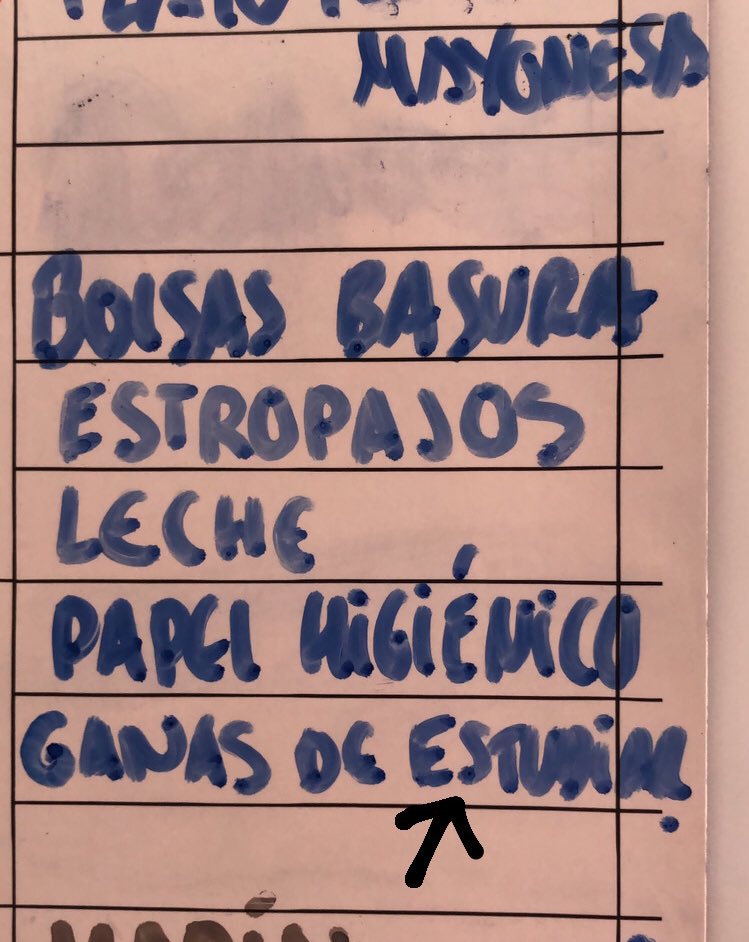 MAYONESA
BOLSAS BASURA
ESTROPAJOS
LECHE
PAPEL HIGIÉNICO
GANAS DE ESTUDIAR